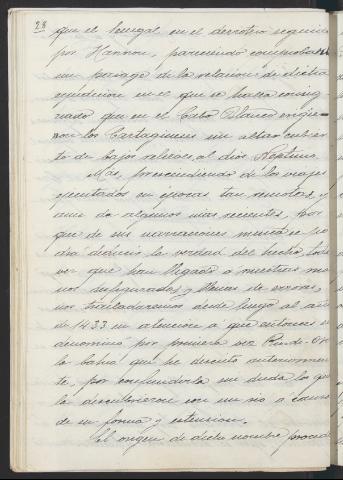 28
que el Senegal en el derrotero seguido
por Hannon, pareciendo comprobarlo
un pasage de la relacion de dicha
expedicion en el que se halla consig-
nado que en el Cabo Blanco erigie-
ron los Cartagineses un altar cubier-
to de bajos relieves al dios Neptuno.
Mas, prescindiendo de los viajes
ejecutados en épocas tan remotas, y
aun de algunos mas recientes, por
que de sus narraciones nunca se po-
drá deducir la verdad del hecho, toda
vez que han llegado á nuestras ma-
nos desfigurados y llenas de errores,
nos trasladaremos desde luego al año
de 1433 en atencion á que entonces se
denominó por primera vez Rio-de-Oro
la bahia que he descrito anteriormen-
te, por confundirla sin duda los que
la descubrieron con un rio á causa
de su forma y extension.
El origen de dicho nombre proced